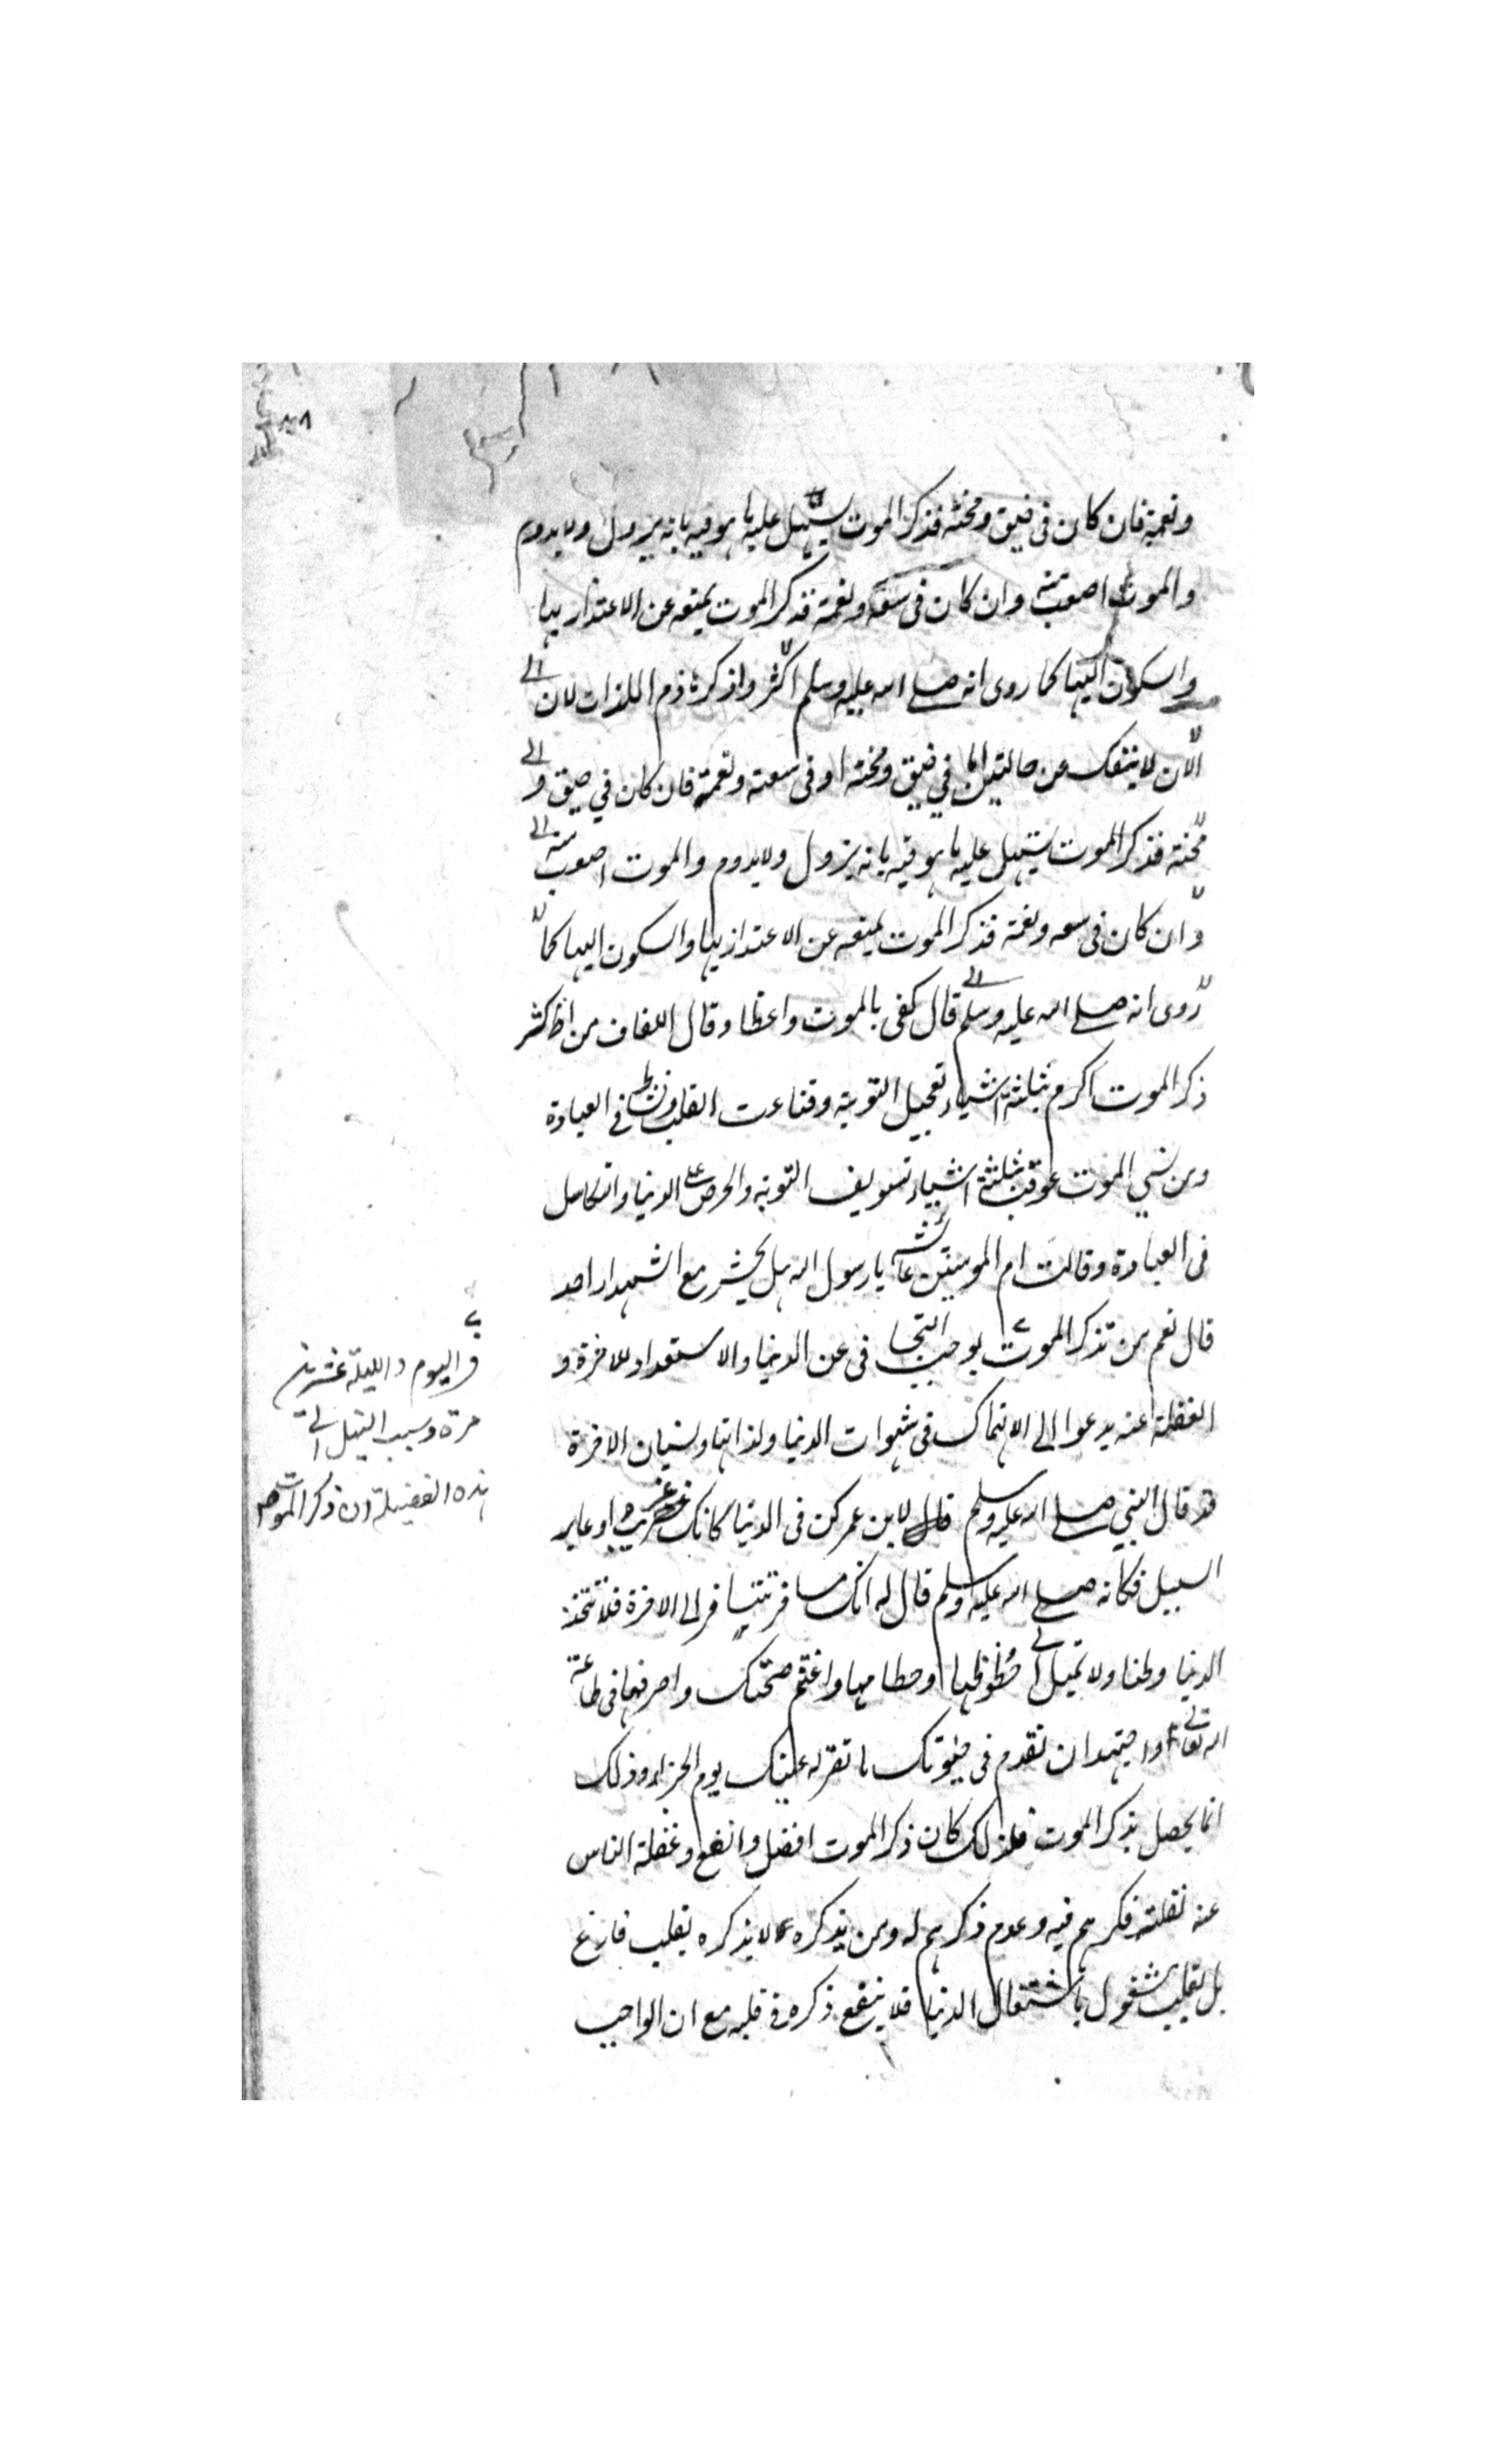 ونعمة فان كان فى ضيق ومحنة فذكر الموت يسهل عليه ما هو فيه بانه يزول ولا يدوم
والموت اصعب منه وان كان فى سعة ونعمة فذكر الموت يمنعه عن الاغترار بها
والسكون اليها كما روى انه صلى الله عليه وسلم اكثروا ذكر هاذم اللذات لان
الانسان لا ينفك عن حالتين اما في ضيق ومحنة او فى سعة ونعمة فان كان في ضيق و
محنة فذكر الموت يسهل عليه ما هو فيه بانه يزول ولا يدوم والموت اصعب منه
وان كان فى سعه ونعمة فذكر الموت يمنعه عن الاعتزاز بها والسكون اليها كما
روى انه صلى الله عليه وسلم قال كفى بالموت واعظا وقال اللفاف من اكثر
ذكر الموت اكرم بثلثة اشياء تعجيل التوبة وقناعت القلب ونشاط فى العبادة
ومن نسي الموت عوقب بثلثة اشياء تسويف التوبة والحرص على الدنيا والتكاسل
فى العبادة وقالت ام المومنين عائشه يا رسول الله هل يحشر مع الشهداء احد
قال نعم من تذكر الموت يوجب التجا فى عن الدنيا والاستعداد للاخرة و
الغفلة عنه يدعوا الى الانهماك فى شهوات الدنيا ولذاتها ونسيان الاخرة
قد قال النبي صلى الله عليه وسلم قال لابن عمر كن فى الدنيا كانك غريب او عابر
السبيل فكانه صلى الله عليه وسلم قال له انك مسافر تتسافر الى الاخرة فلا تتخذ
الدنيا وطنا ولا تميل الى حظوظها وحطامها واغتنم صحتك واصرفها فى طاعة
الله تعالى واجتهد ان تقدم فى حيوتك ما تقر له عينك يوم الجزاء وذلك
انما يحصل بذكر الموت فلذلك كان ذكر الموت افضل وانفع وغفلة الناس
عنه لقلة فكرهم فيه وعدم ذكرهم له ومن يذكره لا يذكره بقلب فارغ
بل بقلب مشغول باشتغال الدنيا فلا ينفع ذكره فى قلبه مع ان الواجب
فى اليوم والليلة عشرين
مرة وسبب النيل الى
هذه الفضيلة ان ذكر الموت